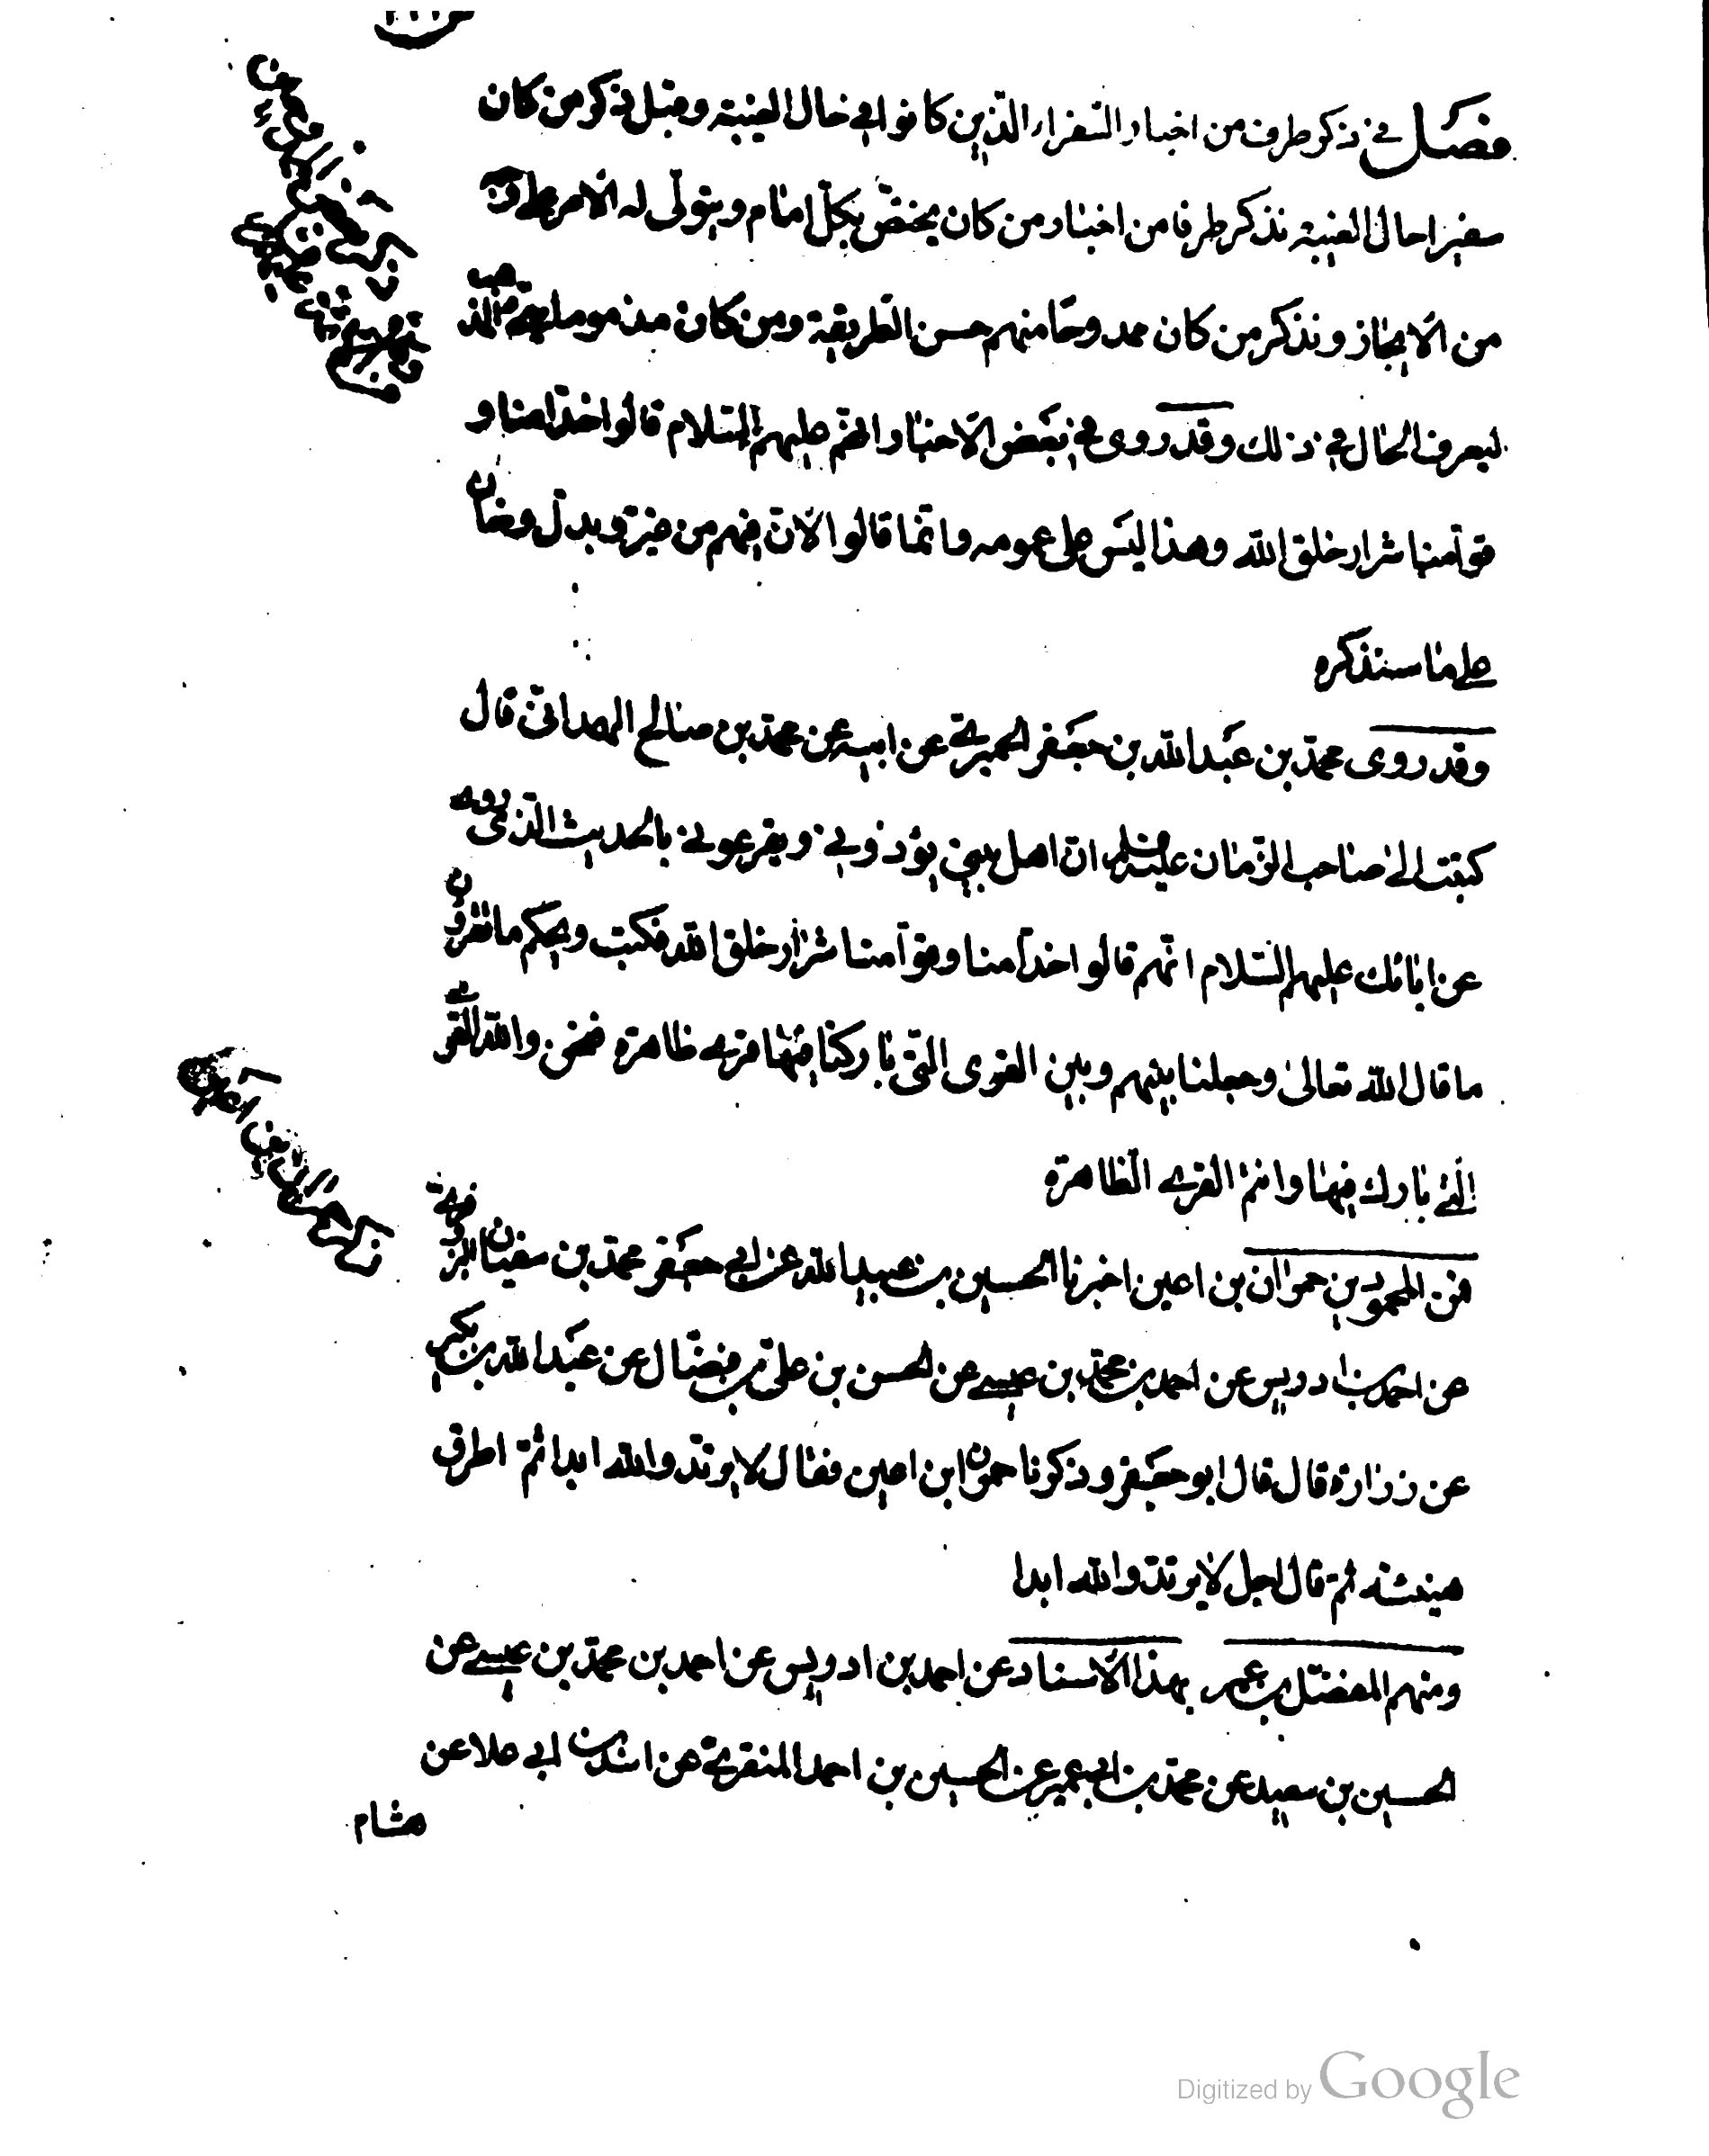 فصل في ذكر طرف من اخبار السفراء الذين كانوا في حال الغيبة وقبل ذكر من كان
سفيرا حال الغيبة نذكر طرفا من اخبار من كان يختص بكل امام ويتولى له الامر على وجه
من الايجاز ونذكر من كان ممدوحا منهم حسن الطريقة ومن كان مذموما سيئ المذهب
ليعرف الحال في ذلك وقد روى في بعض الاخبار انهم عليهم السلام قالوا خدامنا و
قوامنا شرار خلق الله وهذا ليس على عمومه وانما قالوا لان فيهم من غير وبدل وخان
على ما سنذكره
وقد روى محمد بن عبد الله بن جعفر الحميرى عن ابيه عن محمد بن صالح الهمدانى قال
كتبت الى صاحب الزمان عليه السلام ان اهل بيتي يؤذونى ويقرعونى بالحديث الذى روى
عن ابائك عليهم السلام انهم قالوا خدامنا وقوامنا شرار خلق الله فكتب ويحكم ما تقرؤن
ما قال الله تعالى وجعلنا بينهم وبين القرى التى باركنا فيها قرى ظاهرة فنحن والله القرى
التى بارك فيها وانتم القرى الظاهرة
فمن المحمودين حمران بن اعين اخبرنا الحسين بن عبيد الله عن ابى جعفر محمد بن سفيان البزوفرى
عن احمد بن ادريس عن احمد بن محمد بن عيسى عن الحسن بن على بن فضال عن عبد الله بن بكير
عن زرارة قال قال ابو جعفر وذكرنا حمران ابن اعين فقال لا يرتد والله ابدا ثم اطرق
هنيئة ثم قال اجل لا يرتد والله ابدا
ومنهم المفضل بن عمر بهذا الاسناد عن احمد بن ادريس عن احمد بن محمد بن عيسى عن
الحسين بن سعيد عن محمد بن ابى عمير عن الحسين بن احمد المنقرى عن اسد بن ابى علا عن
هشام
Digitized by Google